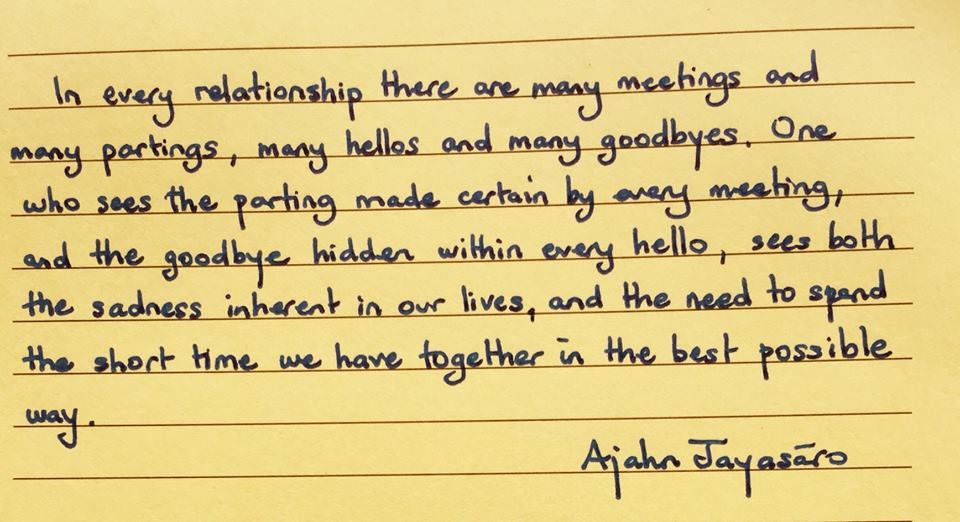 In every relationship there are many meetings and
many partings, many hellos and many goodbyes. One
who sees the parting made certain by every meeting,
and the goodbye hidden within every hello, sees both
the sadness inherent in our lives, and the need to spend
the short time we have together in the best possible
way.
Ajahn Jayasāro